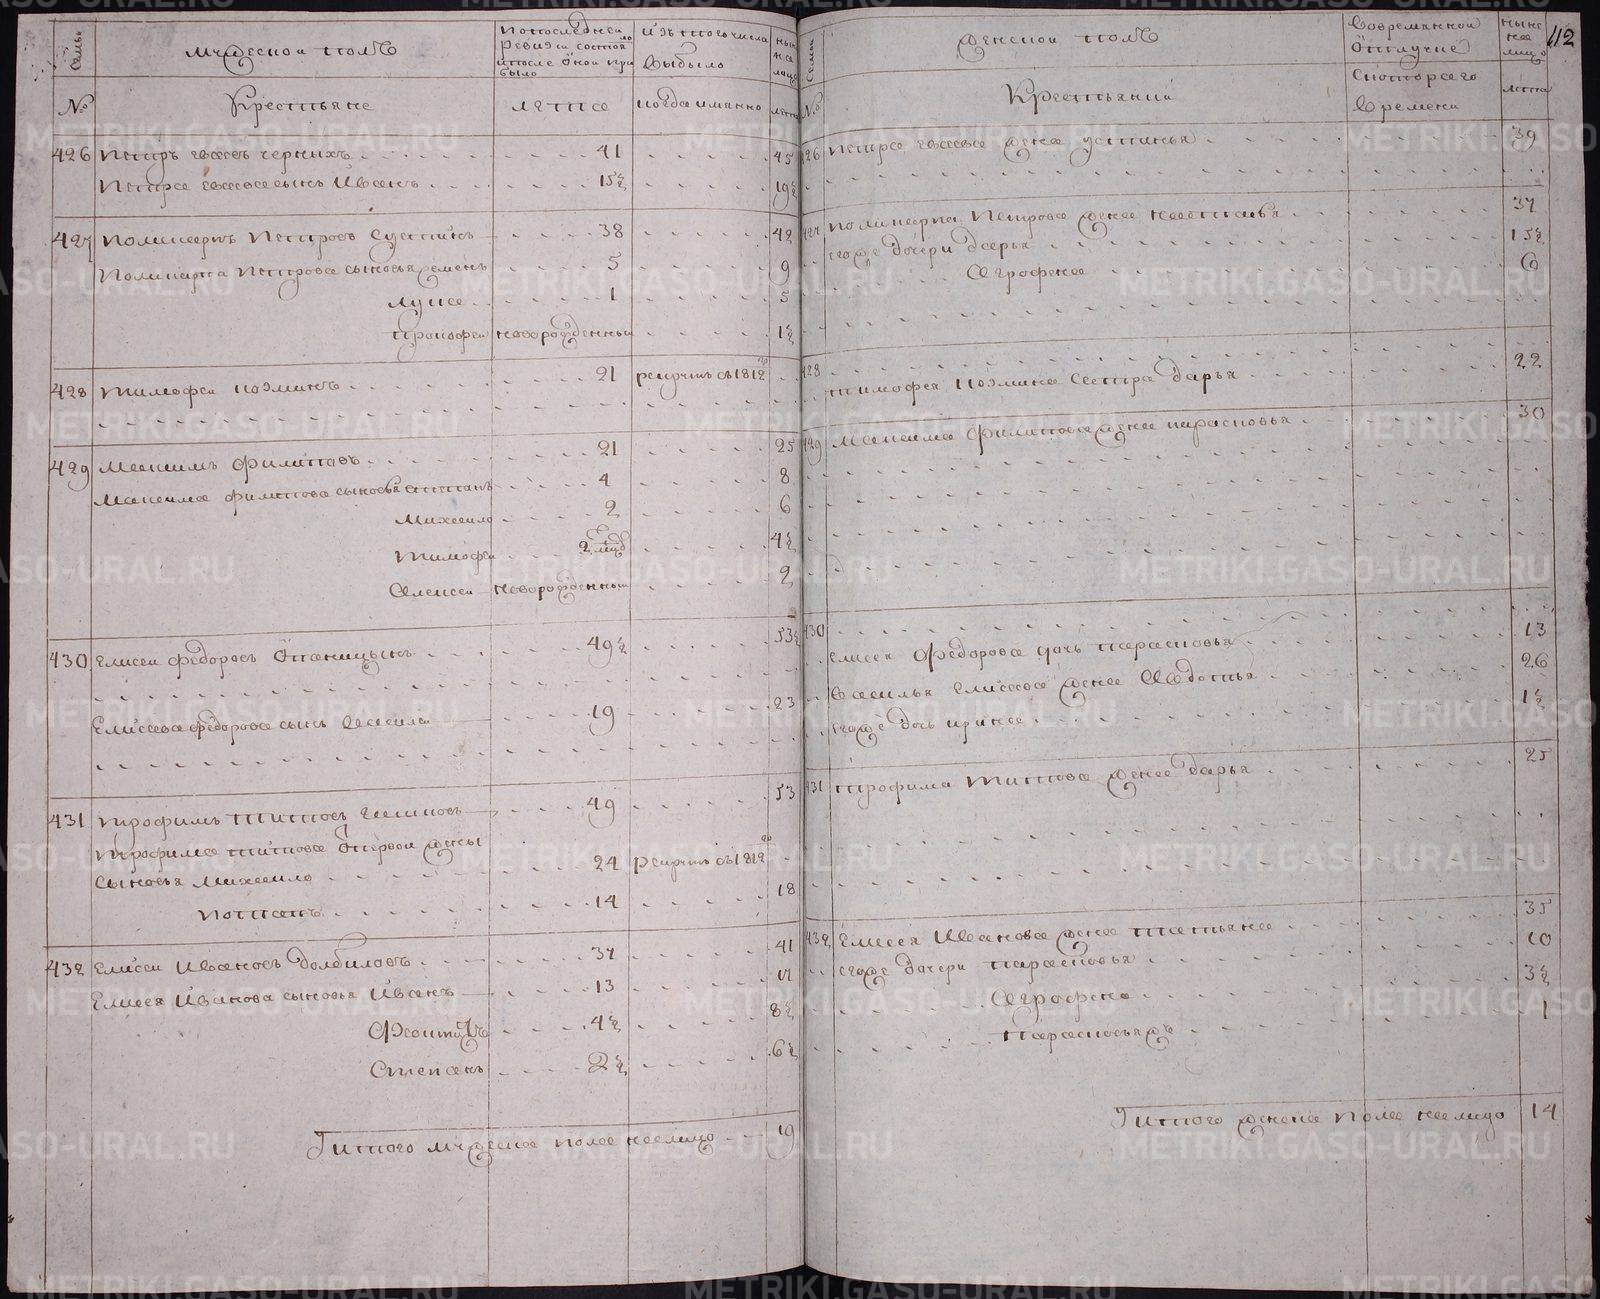 Семьи
мужескои полъ
По последнеи ревизи состоя
ло
и после оной при
было
Изъ того числа
выбыло
ныне
на
лицо
№
Крестьяне
лета
когда имянно
лета
426 Петръ Евсеевъ черныхъ 41 45
Петра Евсеева сынъ Иванъ 15½ 19½
427 Поликарпъ Петровъ 38 42
Поликарпа Петрова сыновья 5 9
Лука 1 5
Прокофеи новорожденныи 1½
428 Тимофеи Козминъ 21 рекрутъ въ 1812
го
429 Максимъ Филиповъ 21 25
Максима Филипова сыновья Степанъ 4 8
Михаило 2 6
Тимофеи 4½
Алексеи новорожденныи 2
430 Елисеи Федоровъ 49½ 53½
Елисея Федорова сынъ Василеи 19 23
431 Трофимъ Титовъ 49 53
Трофима Титова от первои жены
сыновья Михаило 24 рекрутъ въ 1812
го
Потапъ 14 18
432 Елисеи Ивановъ Долбиловъ 37 41
Елисея Иванова сыновья Иванъ 13 17
4½ 8½
Степанъ 2½ 6½
Итого мужеска пола налицо 19
Семьи
женскои полъ
Во временнои
отлучке
ныне
на
лицо
112
№
Крестьянки
с которого
времени
лета
426 Петра Евсеева жена Устинья 39
427 Поликарпа Петрова жена Наталья 37
его же дочери Дарья 15½
Аграфена 6
428 Тимофея Козмина сестра Дарья 22
429 Максима Филипова жена Парасковья 30
430
Елисея Федорова дочь Парасковья 13
Василья Елисеева жена Авдотья 26
его же дочь Ирина 1½
431 Трофима Титова жена Дарья 25
432 Елисея Иванова жена Татьяна 35
его же дочери Парасковья 10
Аграфена 3½
Парасковья ж 1
Итого женска пола налицо 14
METRIKI.GASO-URAL.RU